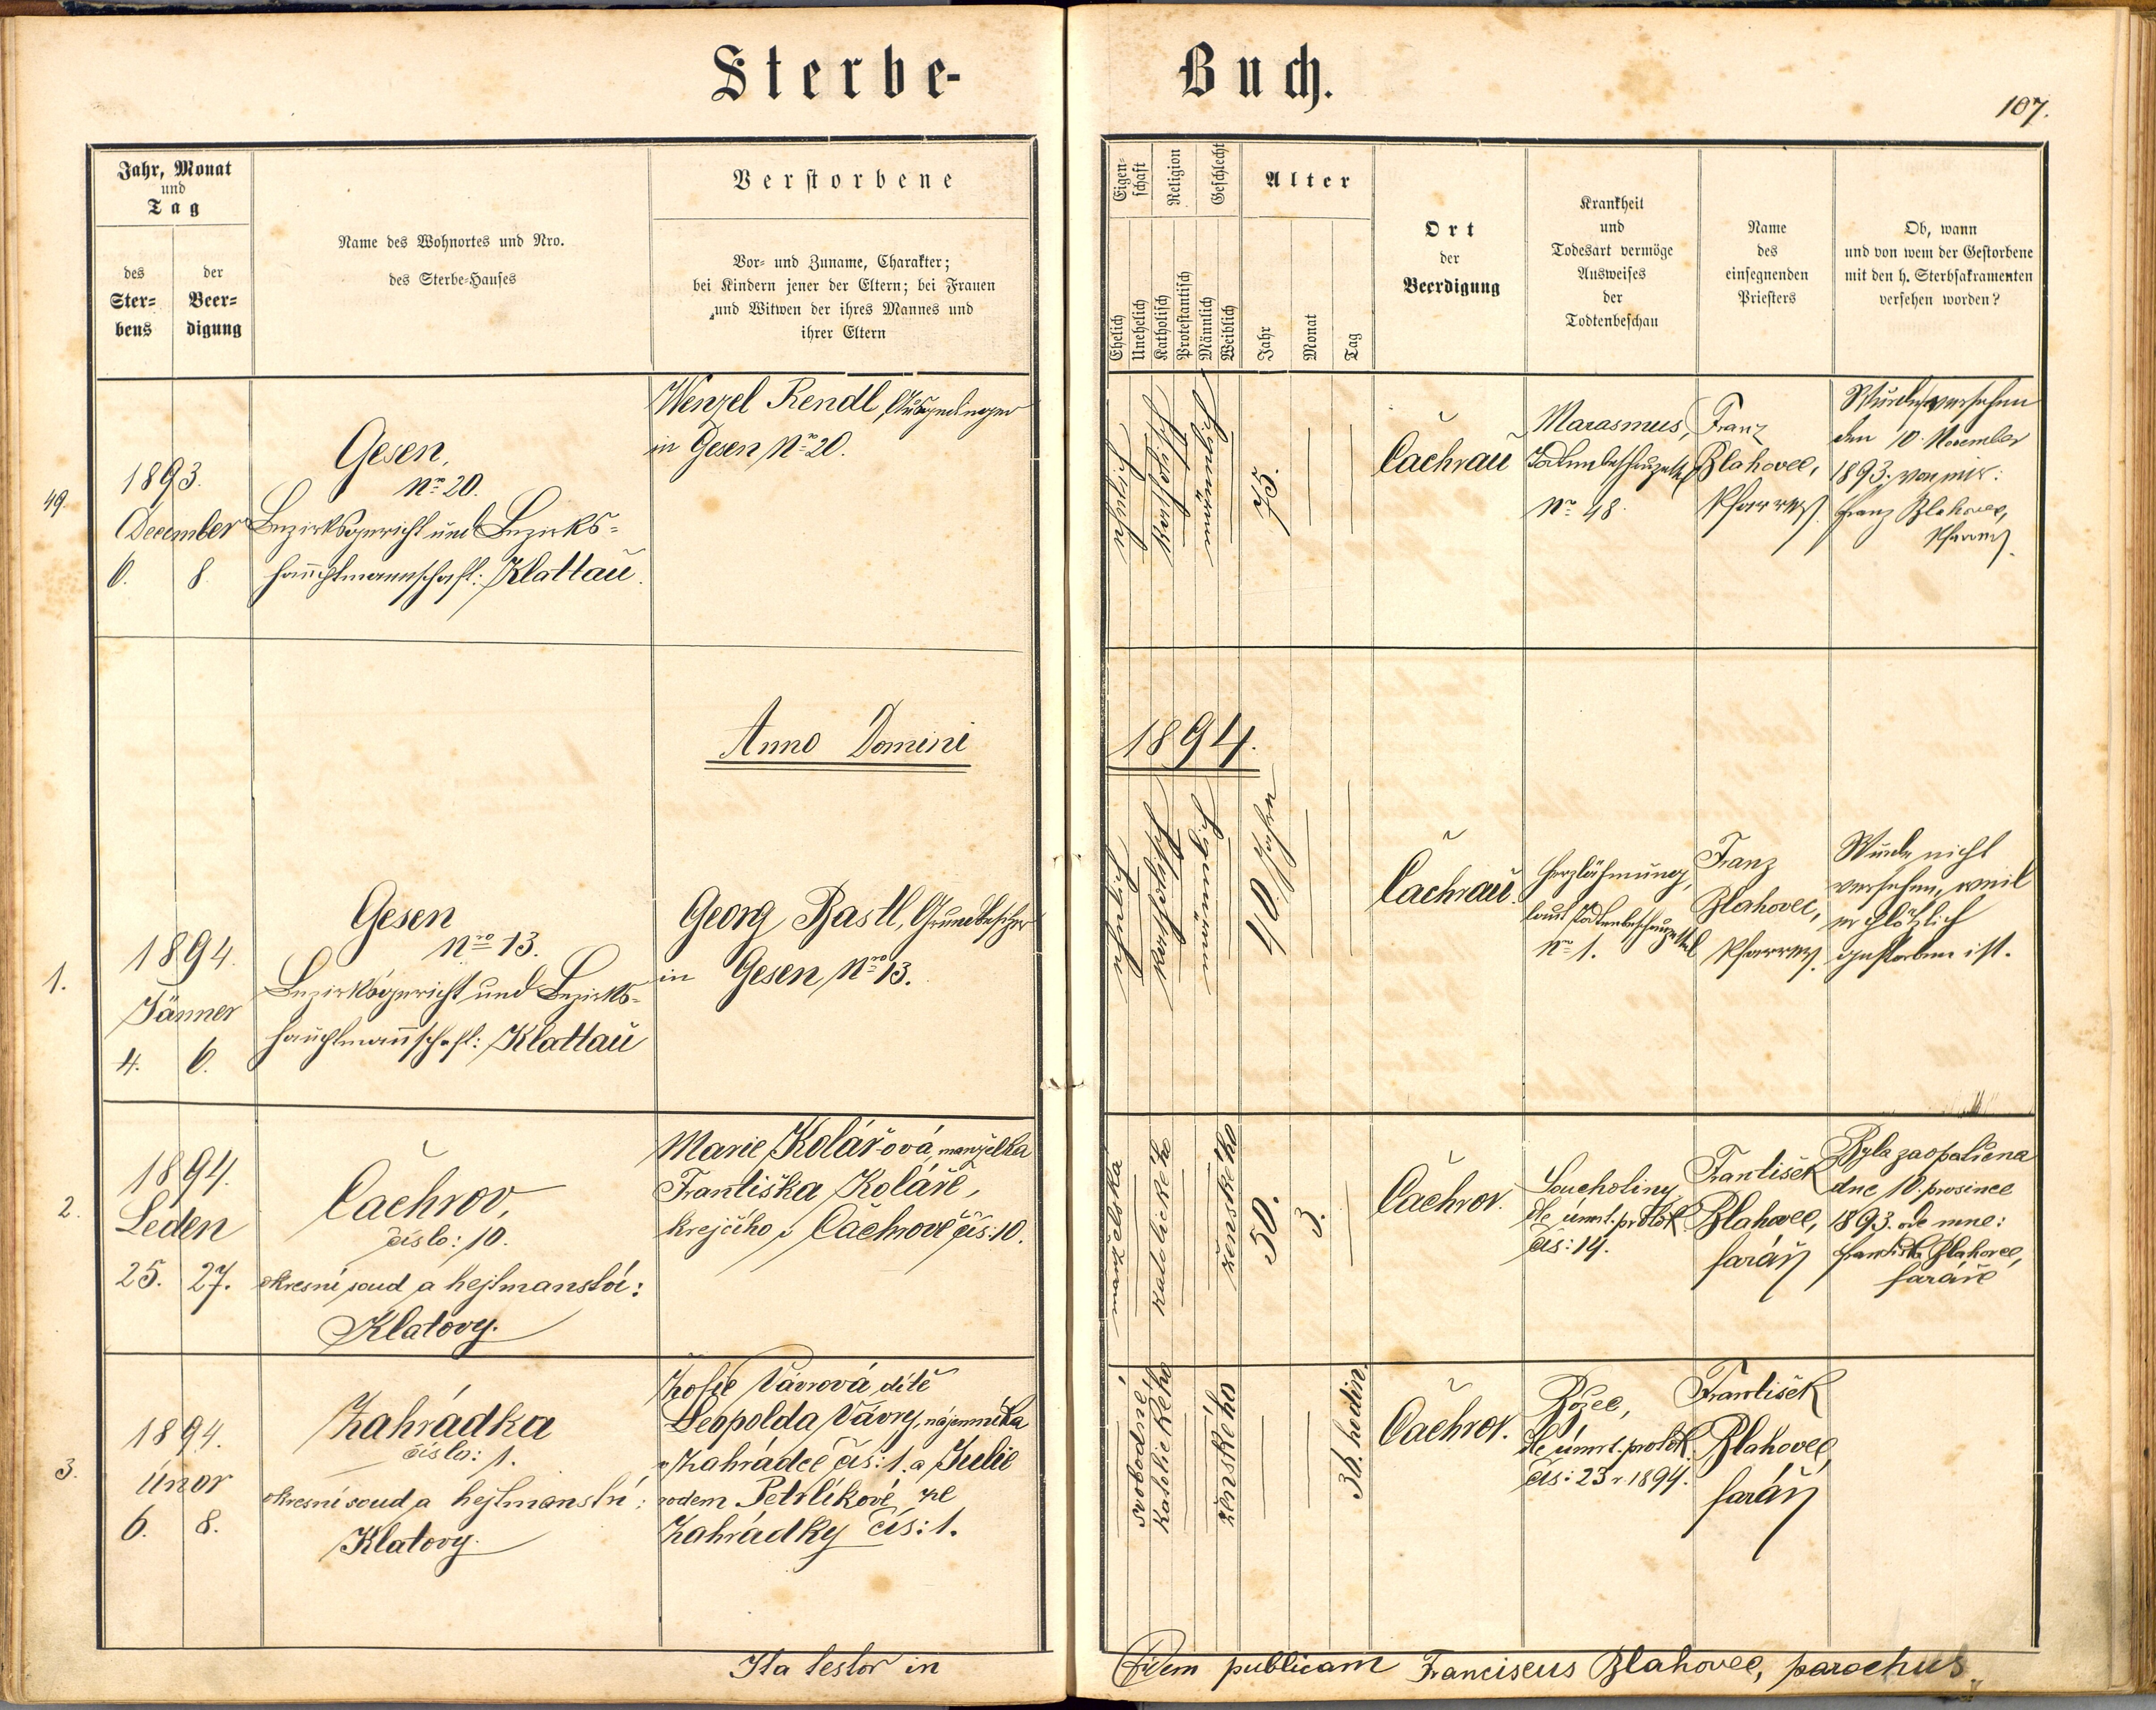 Sterbe-
Buch.
107.
Jahr, Monat
und
Tag
des
Ster-
bens
der
Beer-
digung
Name des Wohnortes und Nro.
des Sterbe-Hauses
Verstorbene
Vor- und Zuname, Charakter;
bei Kindern jener der Eltern; bei Frauen
und Witwen der ihres Mannes und
ihrer Eltern
Eigen-
schaft
Ehelich
Unehelich
Religion
Katholisch
Protestantisch
Geschlecht
Männlich
Weiblich
Alter
Jahr
Monat
Tag
Ort
der
Beerdigung
Krankheit
und
Todesart vermöge
Ausweises
der
Todtenbeschau
Name
des
einsegnenden
Priesters
Ob, wann
und von wem der Gestorbene
mit den h. Sterbsakramenten
versehen worden?
49.
1893.
December
6. 8.
Gesen,
Nro 20.
Bezirksgericht und Bezirks-
hauptmannschaft: Klattau.
Wenzel Rendl, Ausgedinger
in Gesen Nro 20.
ehelich
katholisch
männlich
75.
Čachrau
Marasmus,
Todtenbeschauzettel
Nro 48.
Franz
Blahovec,
Pfarrer.
Wurde versehen
den 10. November
1893. von mir:
Franz Blahovec,
Pfarrer.
Anno Domini
1894.
1.
1894.
Jänner
4. 6.
Gesen
Nro 13.
Bezirksgericht und Bezirks-
hauptmannschaft: Klattau
Georg Bastl, Grundbesitzer
in Gesen Nro 13.
ehelich
katholisch
männlich
40 Jahre
Čachrau.
Herzlähmung,
laut Todtenbeschauzettel
Nro 1.
Franz
Blahovec,
Pfarrer.
Wurde nicht
versehen, weil
er plötzlich
gestorben ist.
2.
1894.
Leden
25. 27.
Čachrov,
číslo: 10.
okresní soud a hejtmanství:
Klatovy.
Marie Kolářová, manželka
Františka Koláře,
krejčího v Čachrově čís: 10.
manželská
katolického
ženského
50.
3.
Čachrov.
Souchotiny
dle úmrt. protok.
čís: 14.
František
Blahovec,
farář
Byla zaopatřena
dne 10. prosince
1893. ode mne:
František Blahovec,
faráře
3.
1894.
únor
6. 8.
Zahrádka
číslo: 1.
okresní soud a hejtmanství:
Klatovy.
Žofie Vávrová, dítě
Leopolda Vávry, nájemníka
v Zahrádce čís: 1. a Julie
rodem Petrlíkové ze
Zahrádky čís: 1.
svobodné
katolického
ženského
36. hodin.
Čachrov.
dle úmrt. protok.
čís: 23 r. 1894.
František
Blahovec,
farář
Ita testor in
fidem publicam Franciscus Blahovec, parochus.